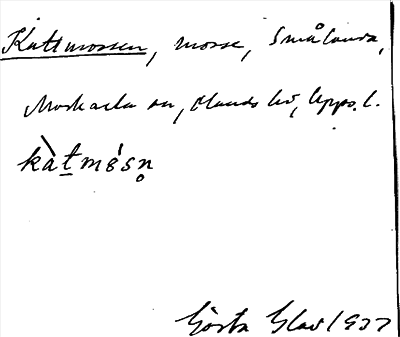 Kattmossen, mosse, Småland,
Morkarla sn, Olands hd, Upps. l.
kàt̠mósn̥
Gösta Glad 1937